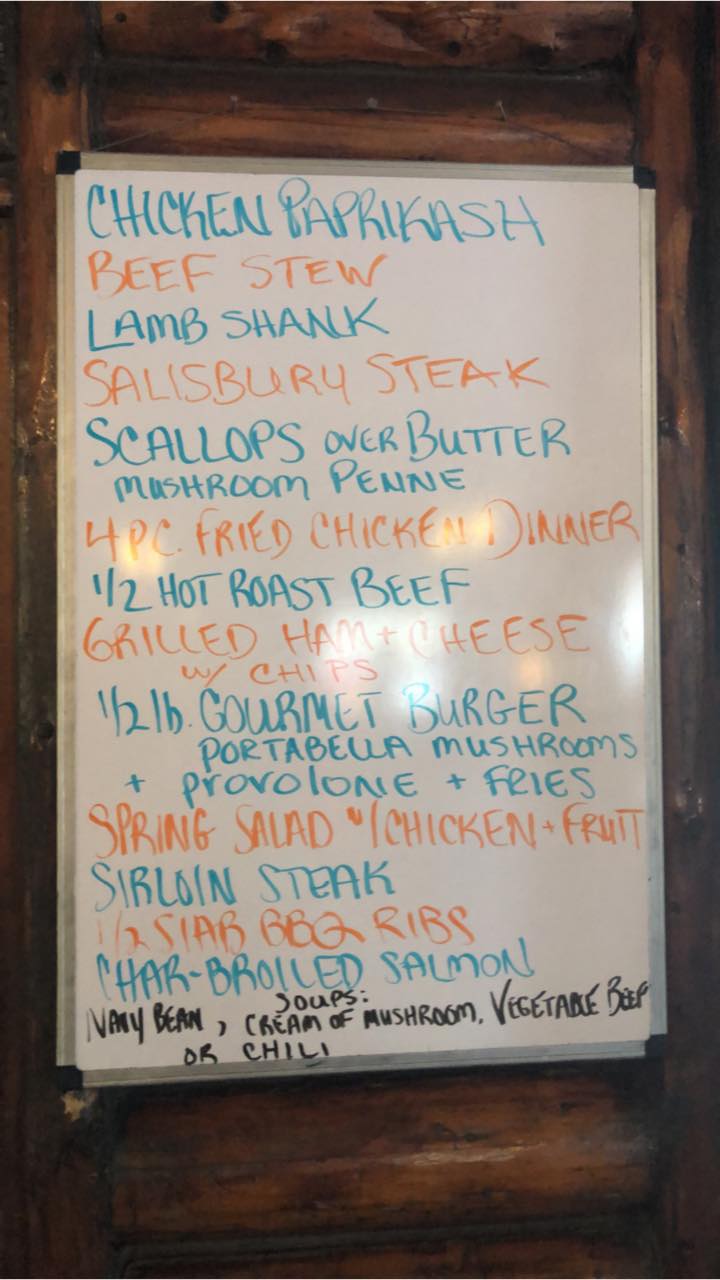 CHICKEN PAPRIKASH
BEEF STEW
LAMB SHANK
SALISBURY STEAK
SCALLOPS OVER BUTTER
MUSHROOM PENNE
4 PC. FRIED CHICKEN DINNER
1/2 HOT ROAST BEEF
GRILLED HAM + CHEESE
W/ CHIPS
1/2 lb. GOURMET BURGER
PORTABELLA MUSHROOMS
+ PROVOLONE + FRIES
SPRING SALAD W/ CHICKEN + FRUIT
SIRLOIN STEAK
1/2 SLAB BBQ RIBS
CHAR-BROILED SALMON
SOUPS:
NAVY BEAN, CREAM OF MUSHROOM, VEGETABLE BEEF
OR CHILI